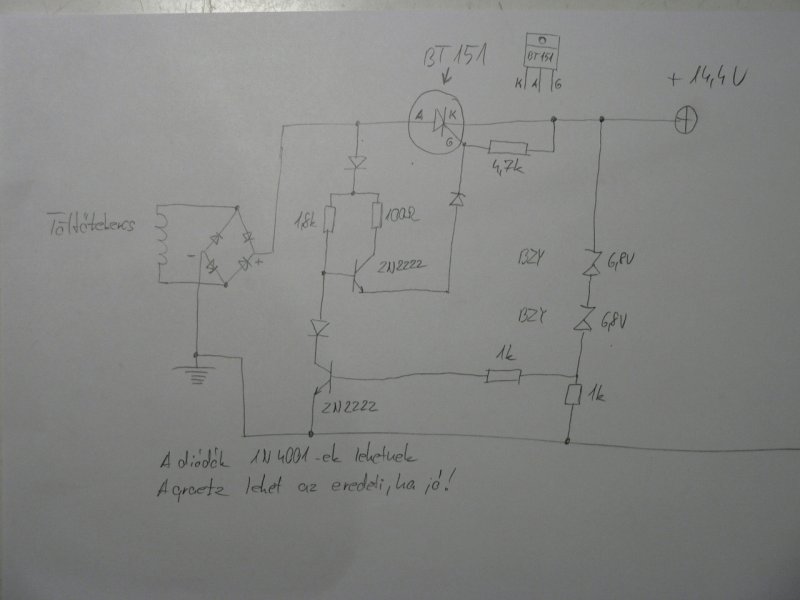 BT 151
BT151
K A G
+ 14,4V
A K
G
4,7k
Töltőtekercs
- +
1,8k 100Ω
2N2222
BZY 6,8V
BZY 6,8V
1k
1k
2N2222
A diódák 1N4001-ek lehetnek
A graetz lehet az eredeti, ha jó!